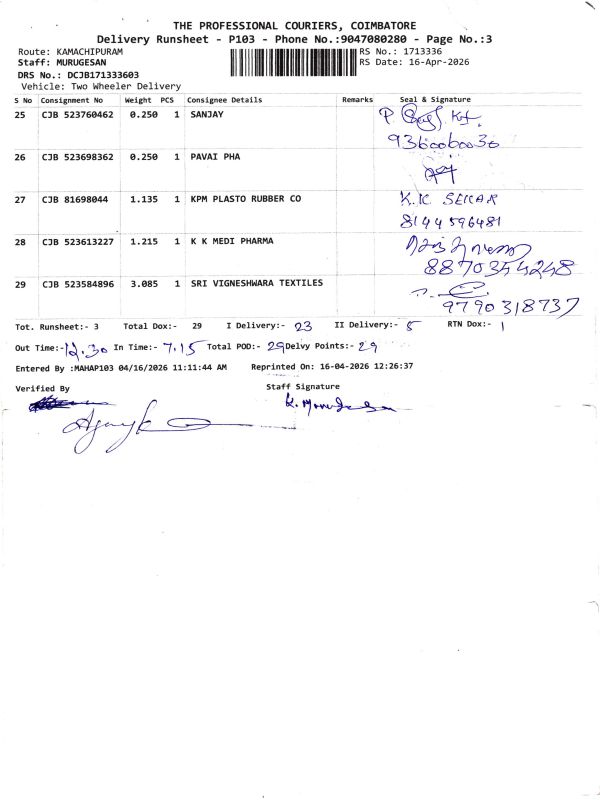 THE PROFESSIONAL COURIERS, COIMBATORE
Delivery Runsheet - P103 - Phone No.:9047080280 - Page No.:3
Route: KAMACHIPURAM RS No.: 1713336
Staff: MURUGESAN RS Date: 16-Apr-2026
DRS No.: DCJB171333603
Vehicle: Two Wheeler Delivery
S No Consignment No Weight PCS Consignee Details Remarks Seal & Signature
25 CJB 523760462 0.250 1 SANJAY
26 CJB 523698362 0.250 1 PAVAI PHA
27 CJB 81698044 1.135 1 KPM PLASTO RUBBER CO K.K SEKAR
8144596481
28 CJB 523613227 1.215 1 K K MEDI PHARMA
8870354248
29 CJB 523584896 3.085 1 SRI VIGNESHWARA TEXTILES
9790318737
Tot. Runsheet:- 3 Total Dox:- 29 I Delivery:- 23 II Delivery:- 5 RTN Dox:- 1
Out Time:- 12.30 In Time:- 7.15 Total POD:- 29 Delvy Points:- 29
Entered By :MAHAP103 04/16/2026 11:11:44 AM Reprinted On: 16-04-2026 12:26:37
Verified By Staff Signature